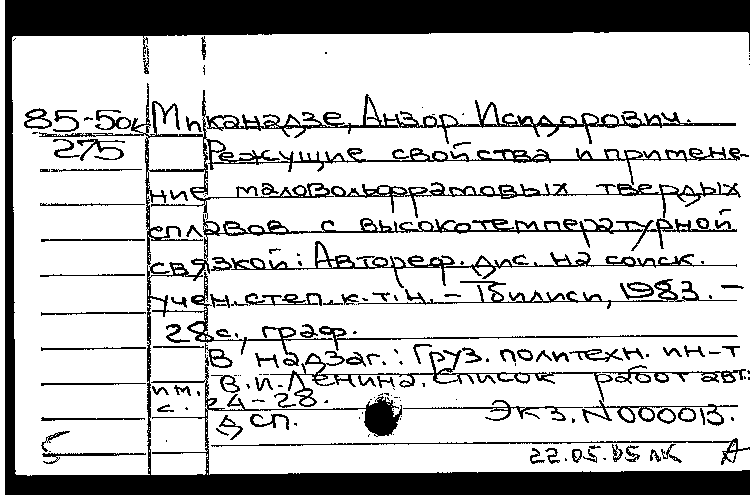 85-5ок Миканадзе, Анзор Исидорович.
275 Режущие свойства и примене-
ние маловольфрамовых твердых
сплавов с высокотемпературной
связкой: Автореф. дис. на соиск.
учен. степ. к.т.н. – Тбилиси, 1983. –
28с., граф.
В надзаг.: Груз. политехн. ин-т
им. В.И. Ленина. Список работ авт.:
с. 24-28.
Дсп. Экз. N 000013.
22.05.85 лк А